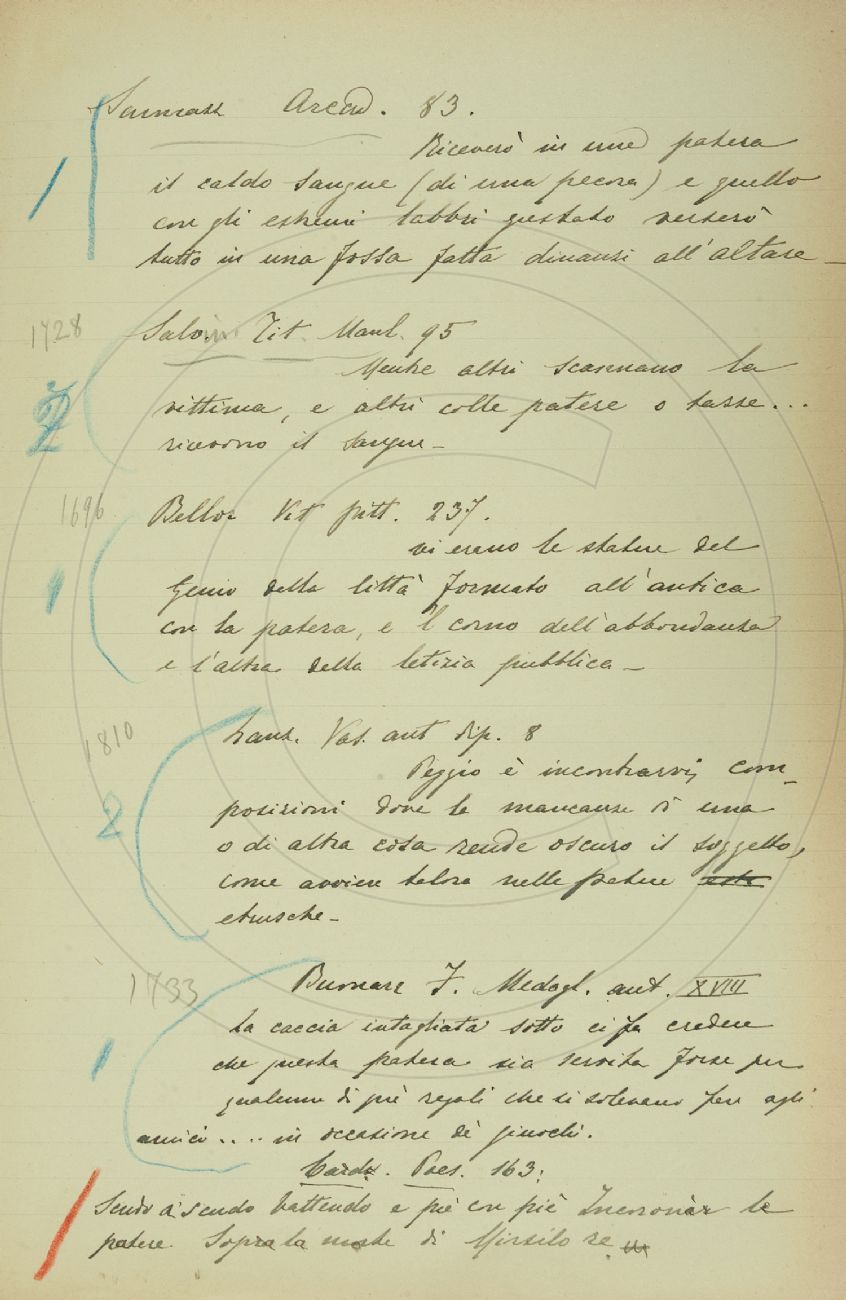 Sannazz Arcad. 83.
Riceverò in una patera
il caldo sangue (di una pecora) e quello
con gli estremi labbri gustato verserò
tutto in una fossa fatta dinanzi all'altare_
1728 Salvin Tit. Manl. 95
Mentre altri scannano la
2 vittima, e altri colle patere o tazze...
ricevono il sangue_
1696 Bellor Vit pitt. 237.
vi erano le statue del
1 Genio della Città formato all'antica
con la patera, e 'l corno dell'abbondanza
e l'altra della letizia pubblica_
1810 Lanz. Vas. ant dip. 8
Peggio è incontrarvi com-
2 posizioni dove la mancanza di una
o di altra cosa rende oscuro il soggetto,
come avvien talora nelle patere
etrusche_
1733 Buonarr F. Medagl. ant. XVIII
la caccia intagliata sotto ci fa credere
1 che questa patera sia servita forse per
qualcuno di piè regali che si solevano fare agli
amici.... in occasione de' giuochi.
Card. Poes. 163:
Scudo a scudo battendo e piè con piè Incoronar le
patere Sopra la morte di Mirsilo re